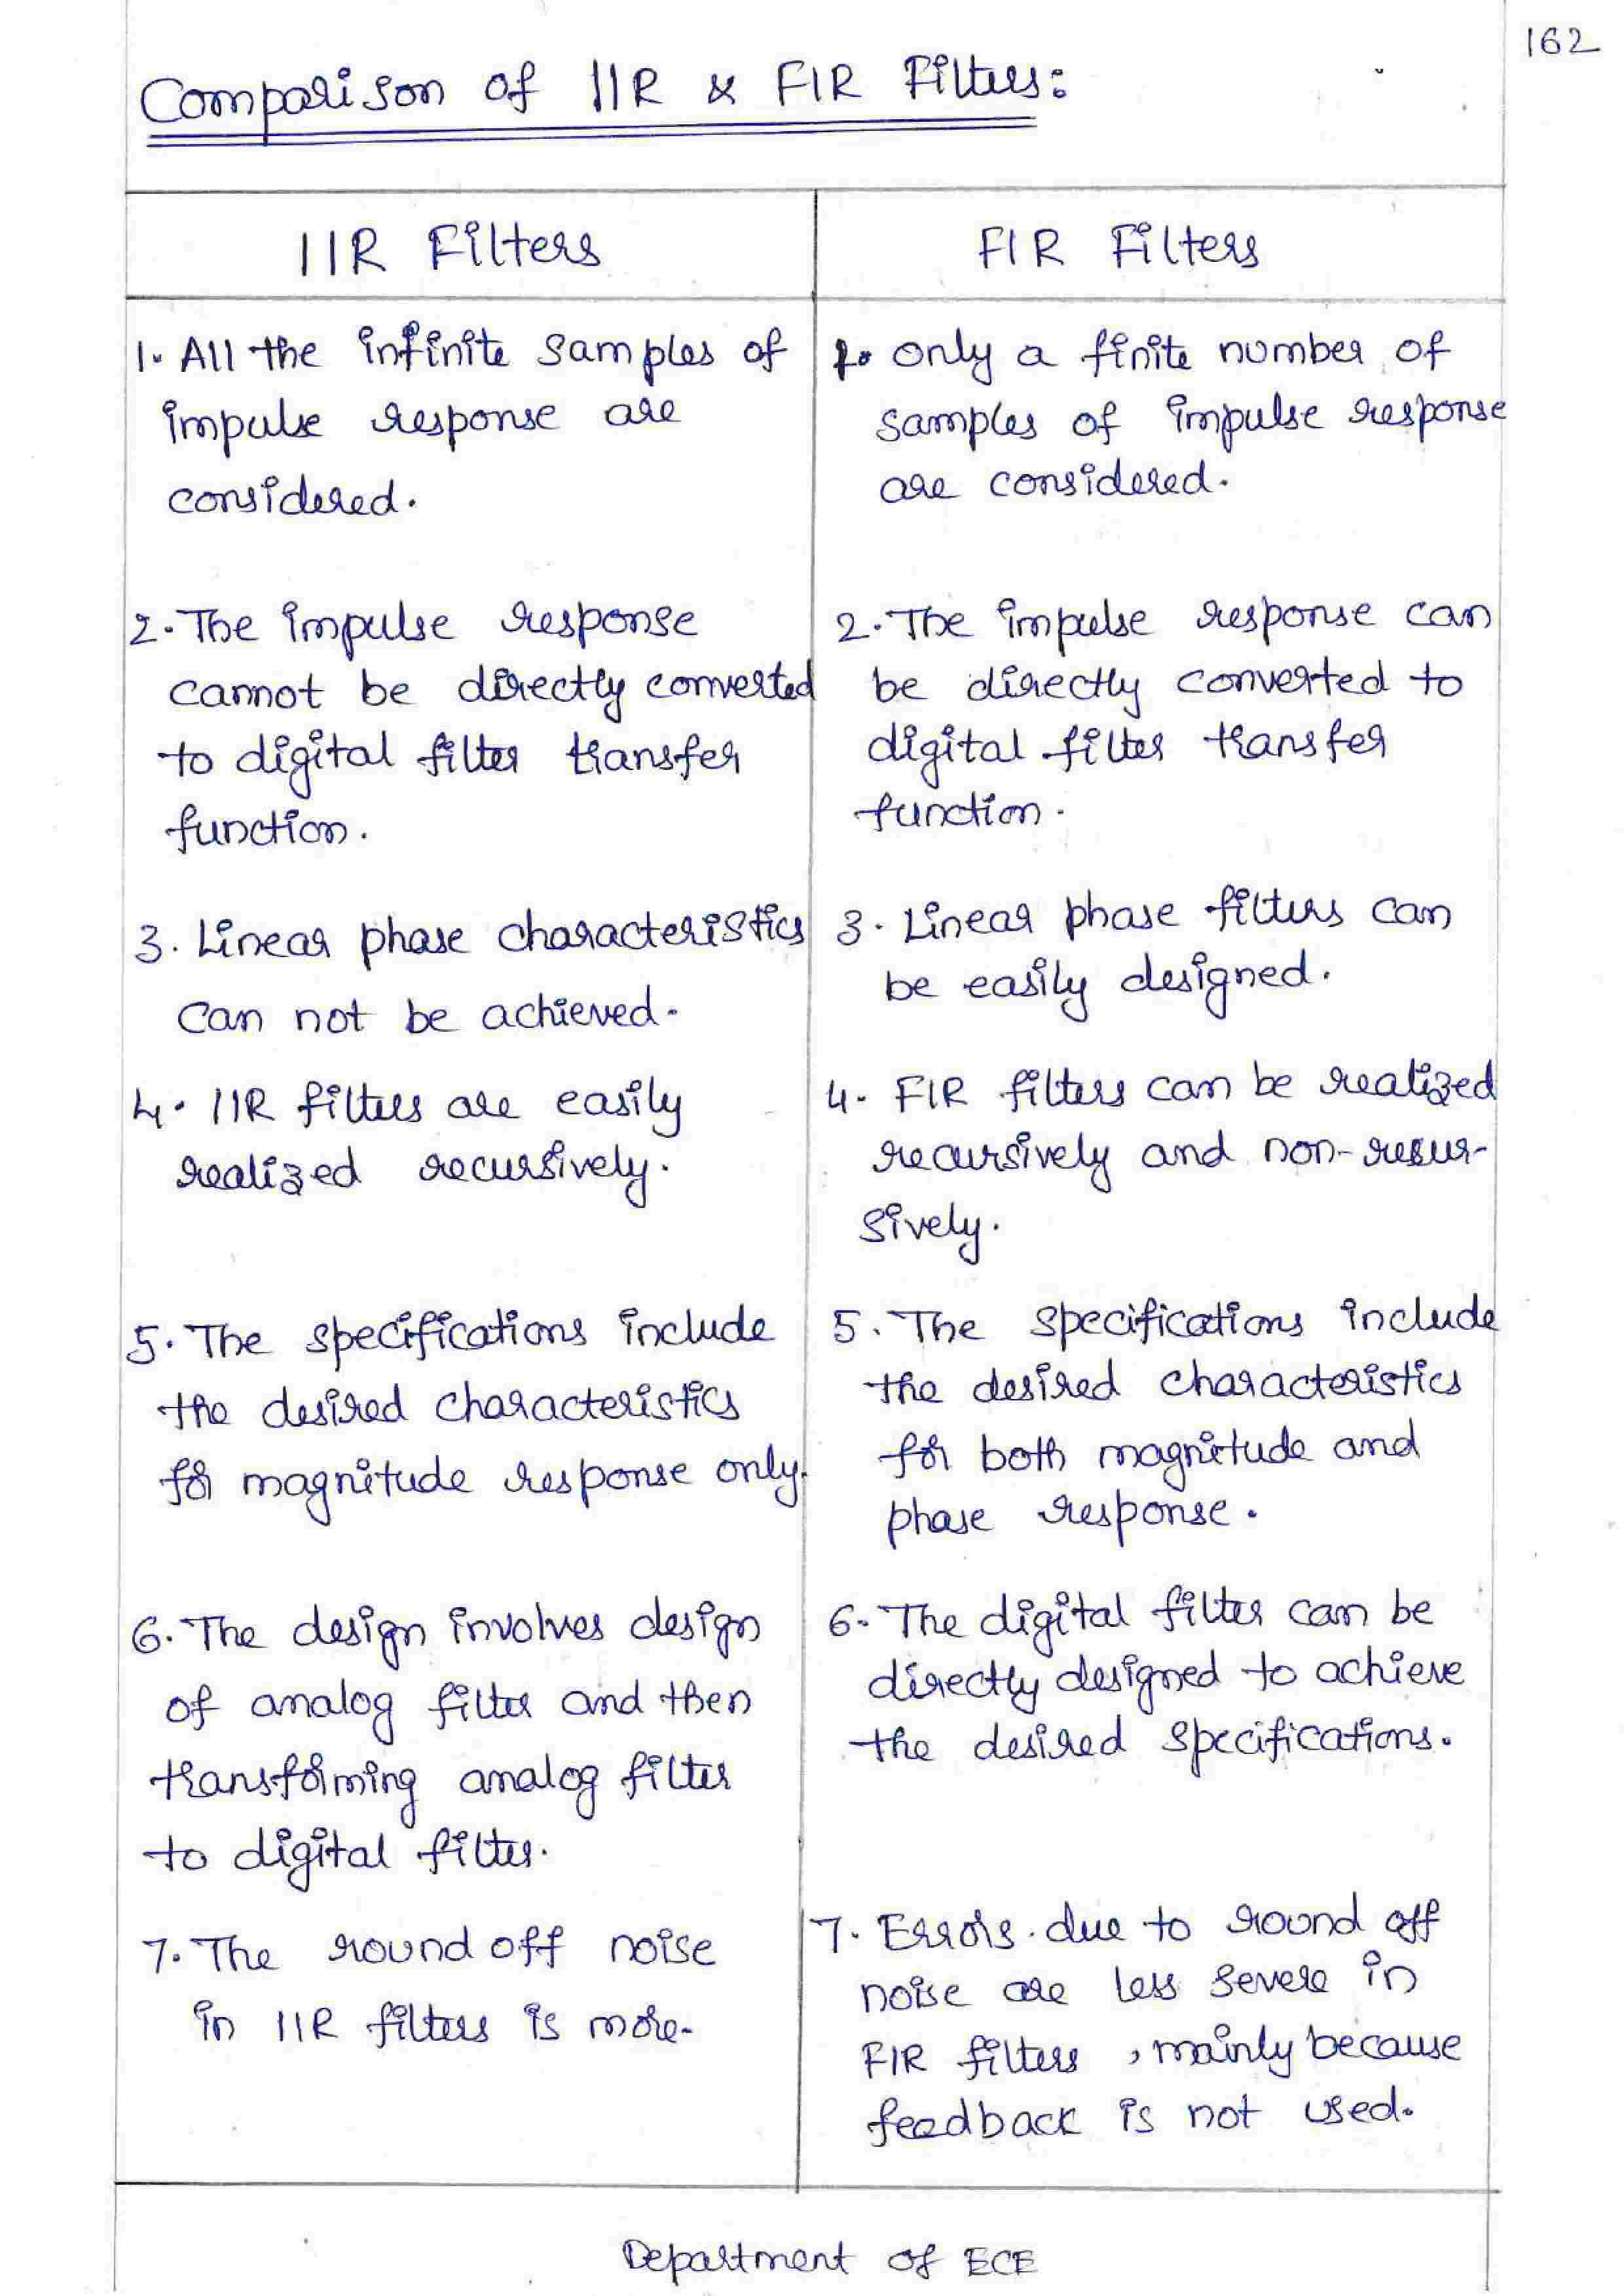 162
Comparison of IIR & FIR Filters:
IIR Filters
FIR Filters
1. All the infinite samples of
impulse response are
considered.
2. The impulse response
cannot be directly converted
to digital filter transfer
function.
3. Linear phase characteristics
can not be achieved.
4. IIR filters are easily
realized recursively.
5. The specifications include
the desired characteristics
for magnitude response only.
6. The design involves design
of analog filter and then
transforming analog filter
to digital filter.
7. The round off noise
in IIR filters is more.
1. only a finite number of
samples of impulse response
are considered.
2. The impulse response can
be directly converted to
digital filter transfer
function.
3. Linear phase filters can
be easily designed.
4. FIR filters can be realized
recursively and non-resur-
sively.
5. The specifications include
the desired characteristics
for both magnitude and
phase response.
6. The digital filter can be
directly designed to achieve
the desired specifications.
7. Errors due to round off
noise are less severe in
FIR filters, mainly because
feedback is not used.
Department of ECE